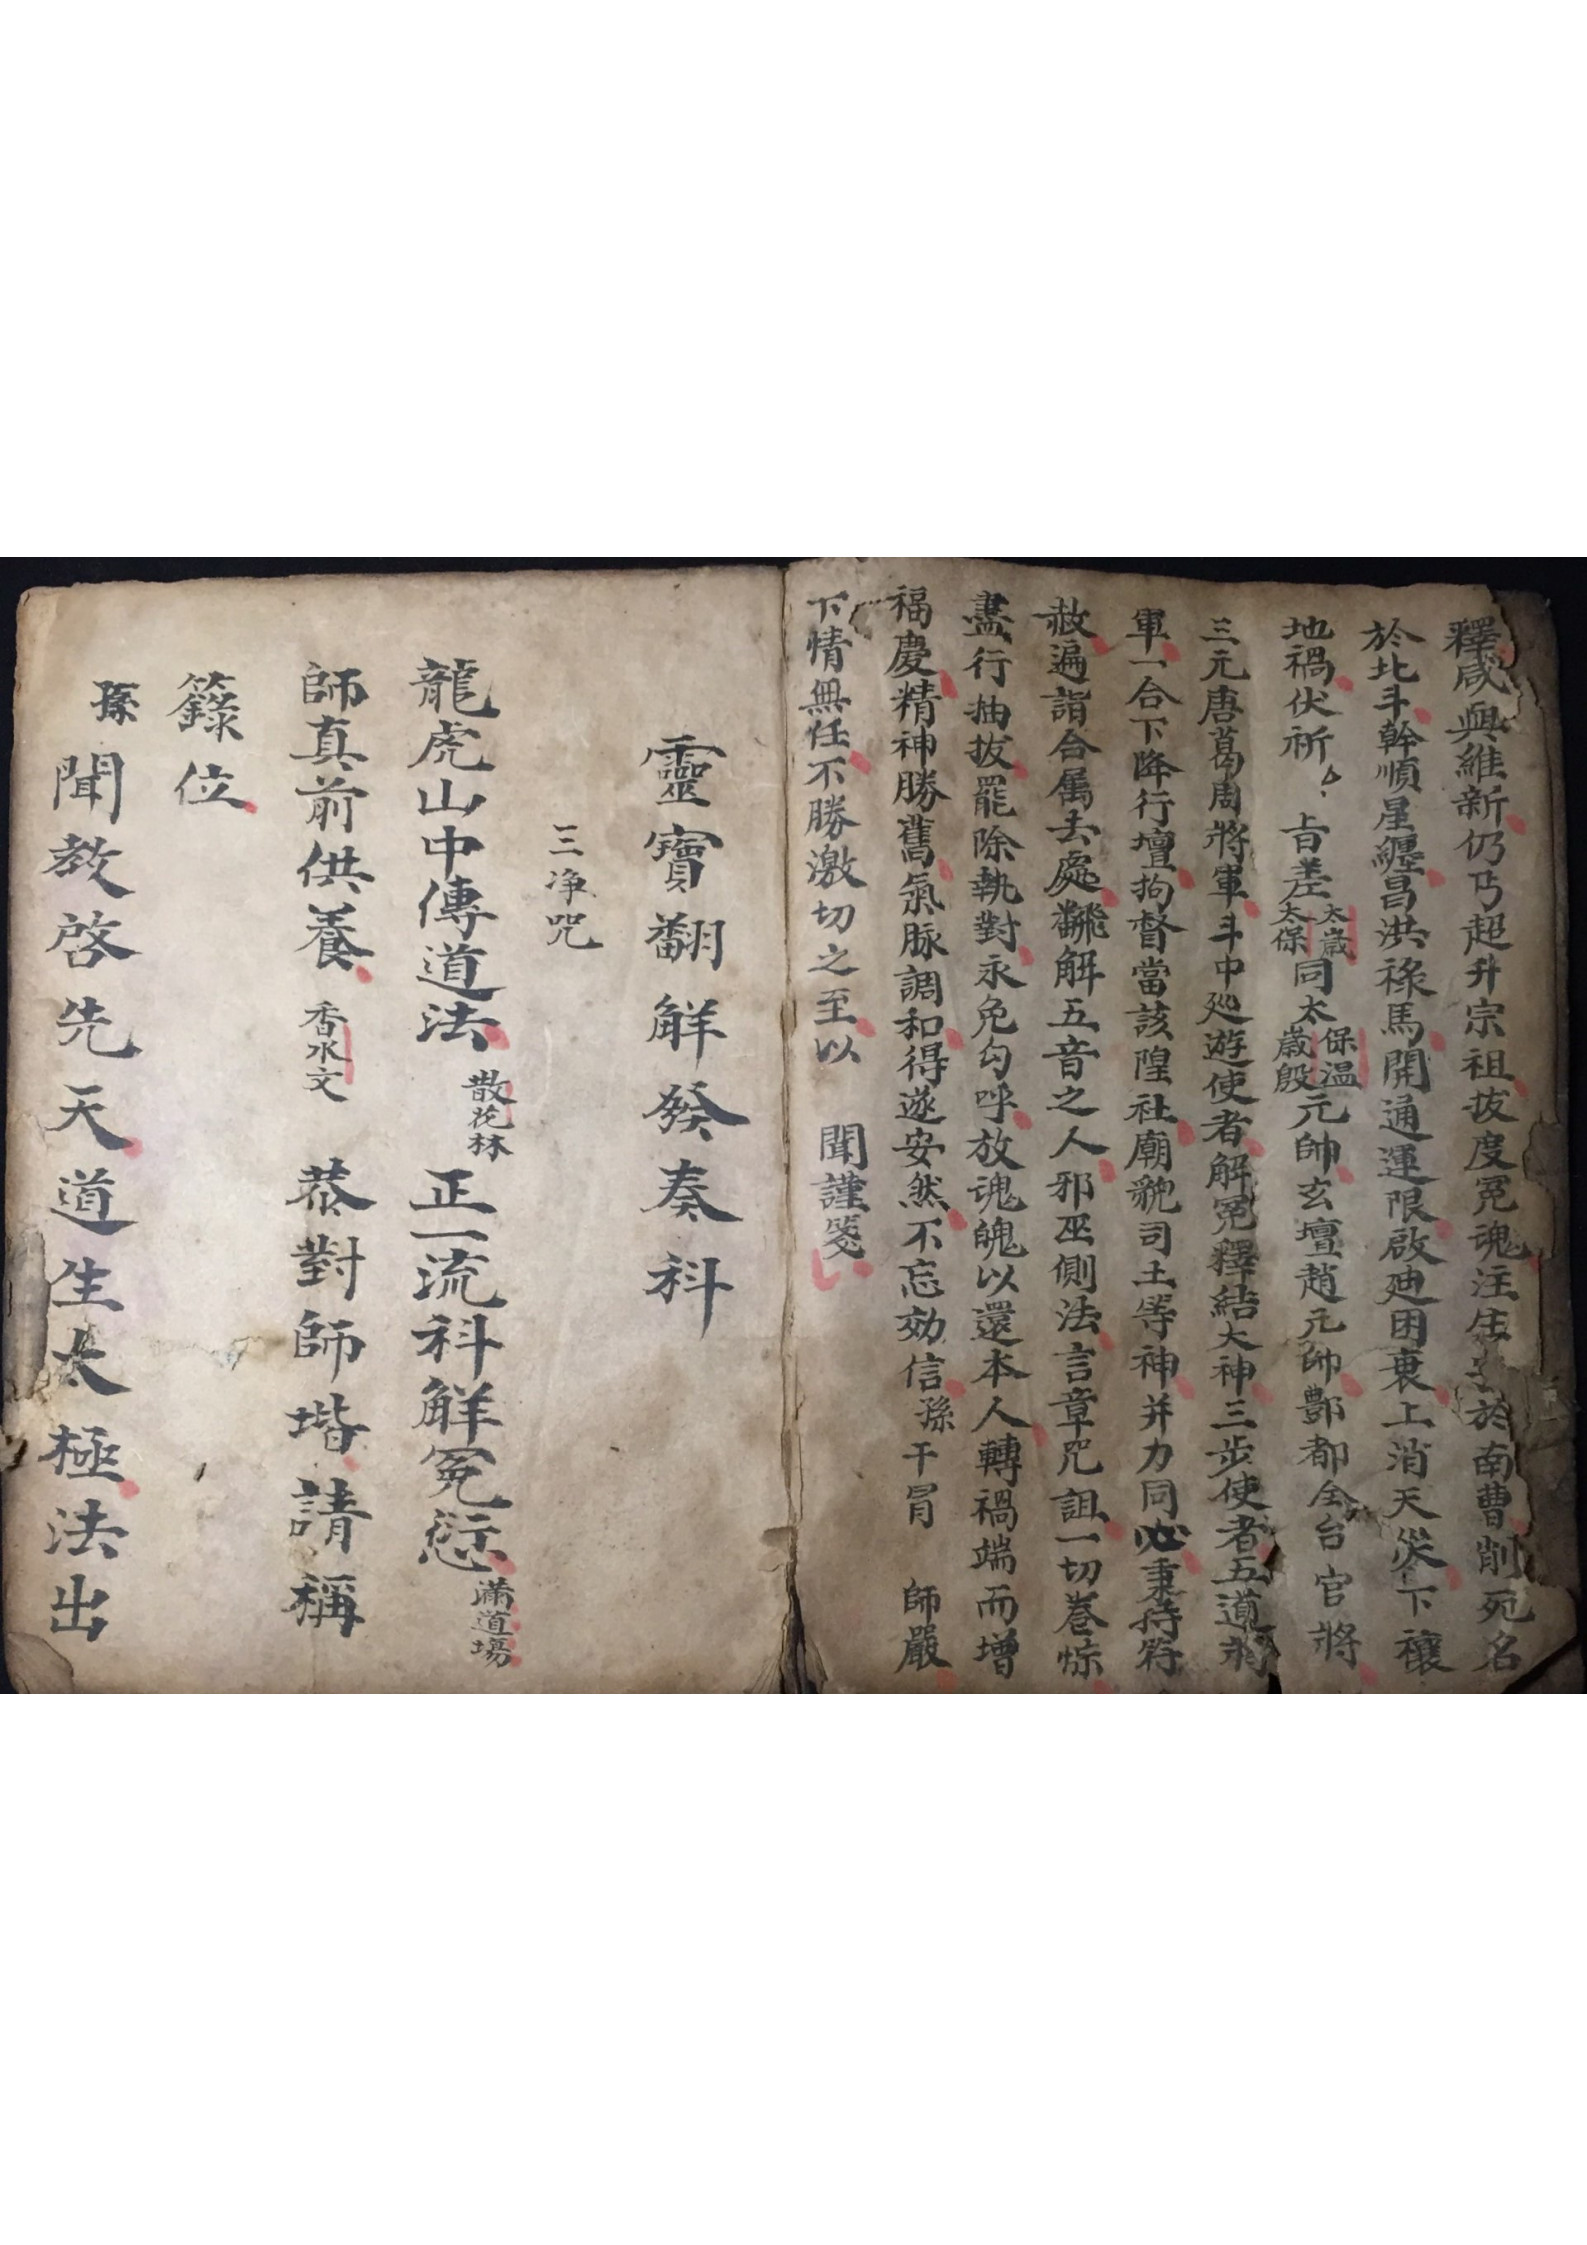 釋咸與維新仍乃超升宗祖拔度冤魂注生於南曹削死名
於北斗幹順星纏昌洪祿馬開通運限啟廸困衰上消天災下禳
地禍伏祈 㫖差太歲太保同太保溫歲殷元帥玄壇趙元帥酆都全台官將
三元唐葛周將軍斗中廵遊使者解冤釋結大神三步使者五道將
軍一合下降行壇拘督當該隍社廟貌司土等神并力同必秉持符
赦遍詣合属去處飜解五音之人邪巫側法言章咒詛一切卷
盡行抽拔罷除執對永免勾呼放魂魄以還本人轉禍端而增
福慶精神勝舊氣脉調和得遂安然不忘効信孫干冐 師嚴
下情無任不勝激切之至以 聞謹箋
靈寶翻解發奏科
三净咒
龍虎山中傳道法散花林 正一流科解冤愆滿道場
師真前供養香水文 恭對師堦請稱
籙位
孫聞教啓先天道生太極法出